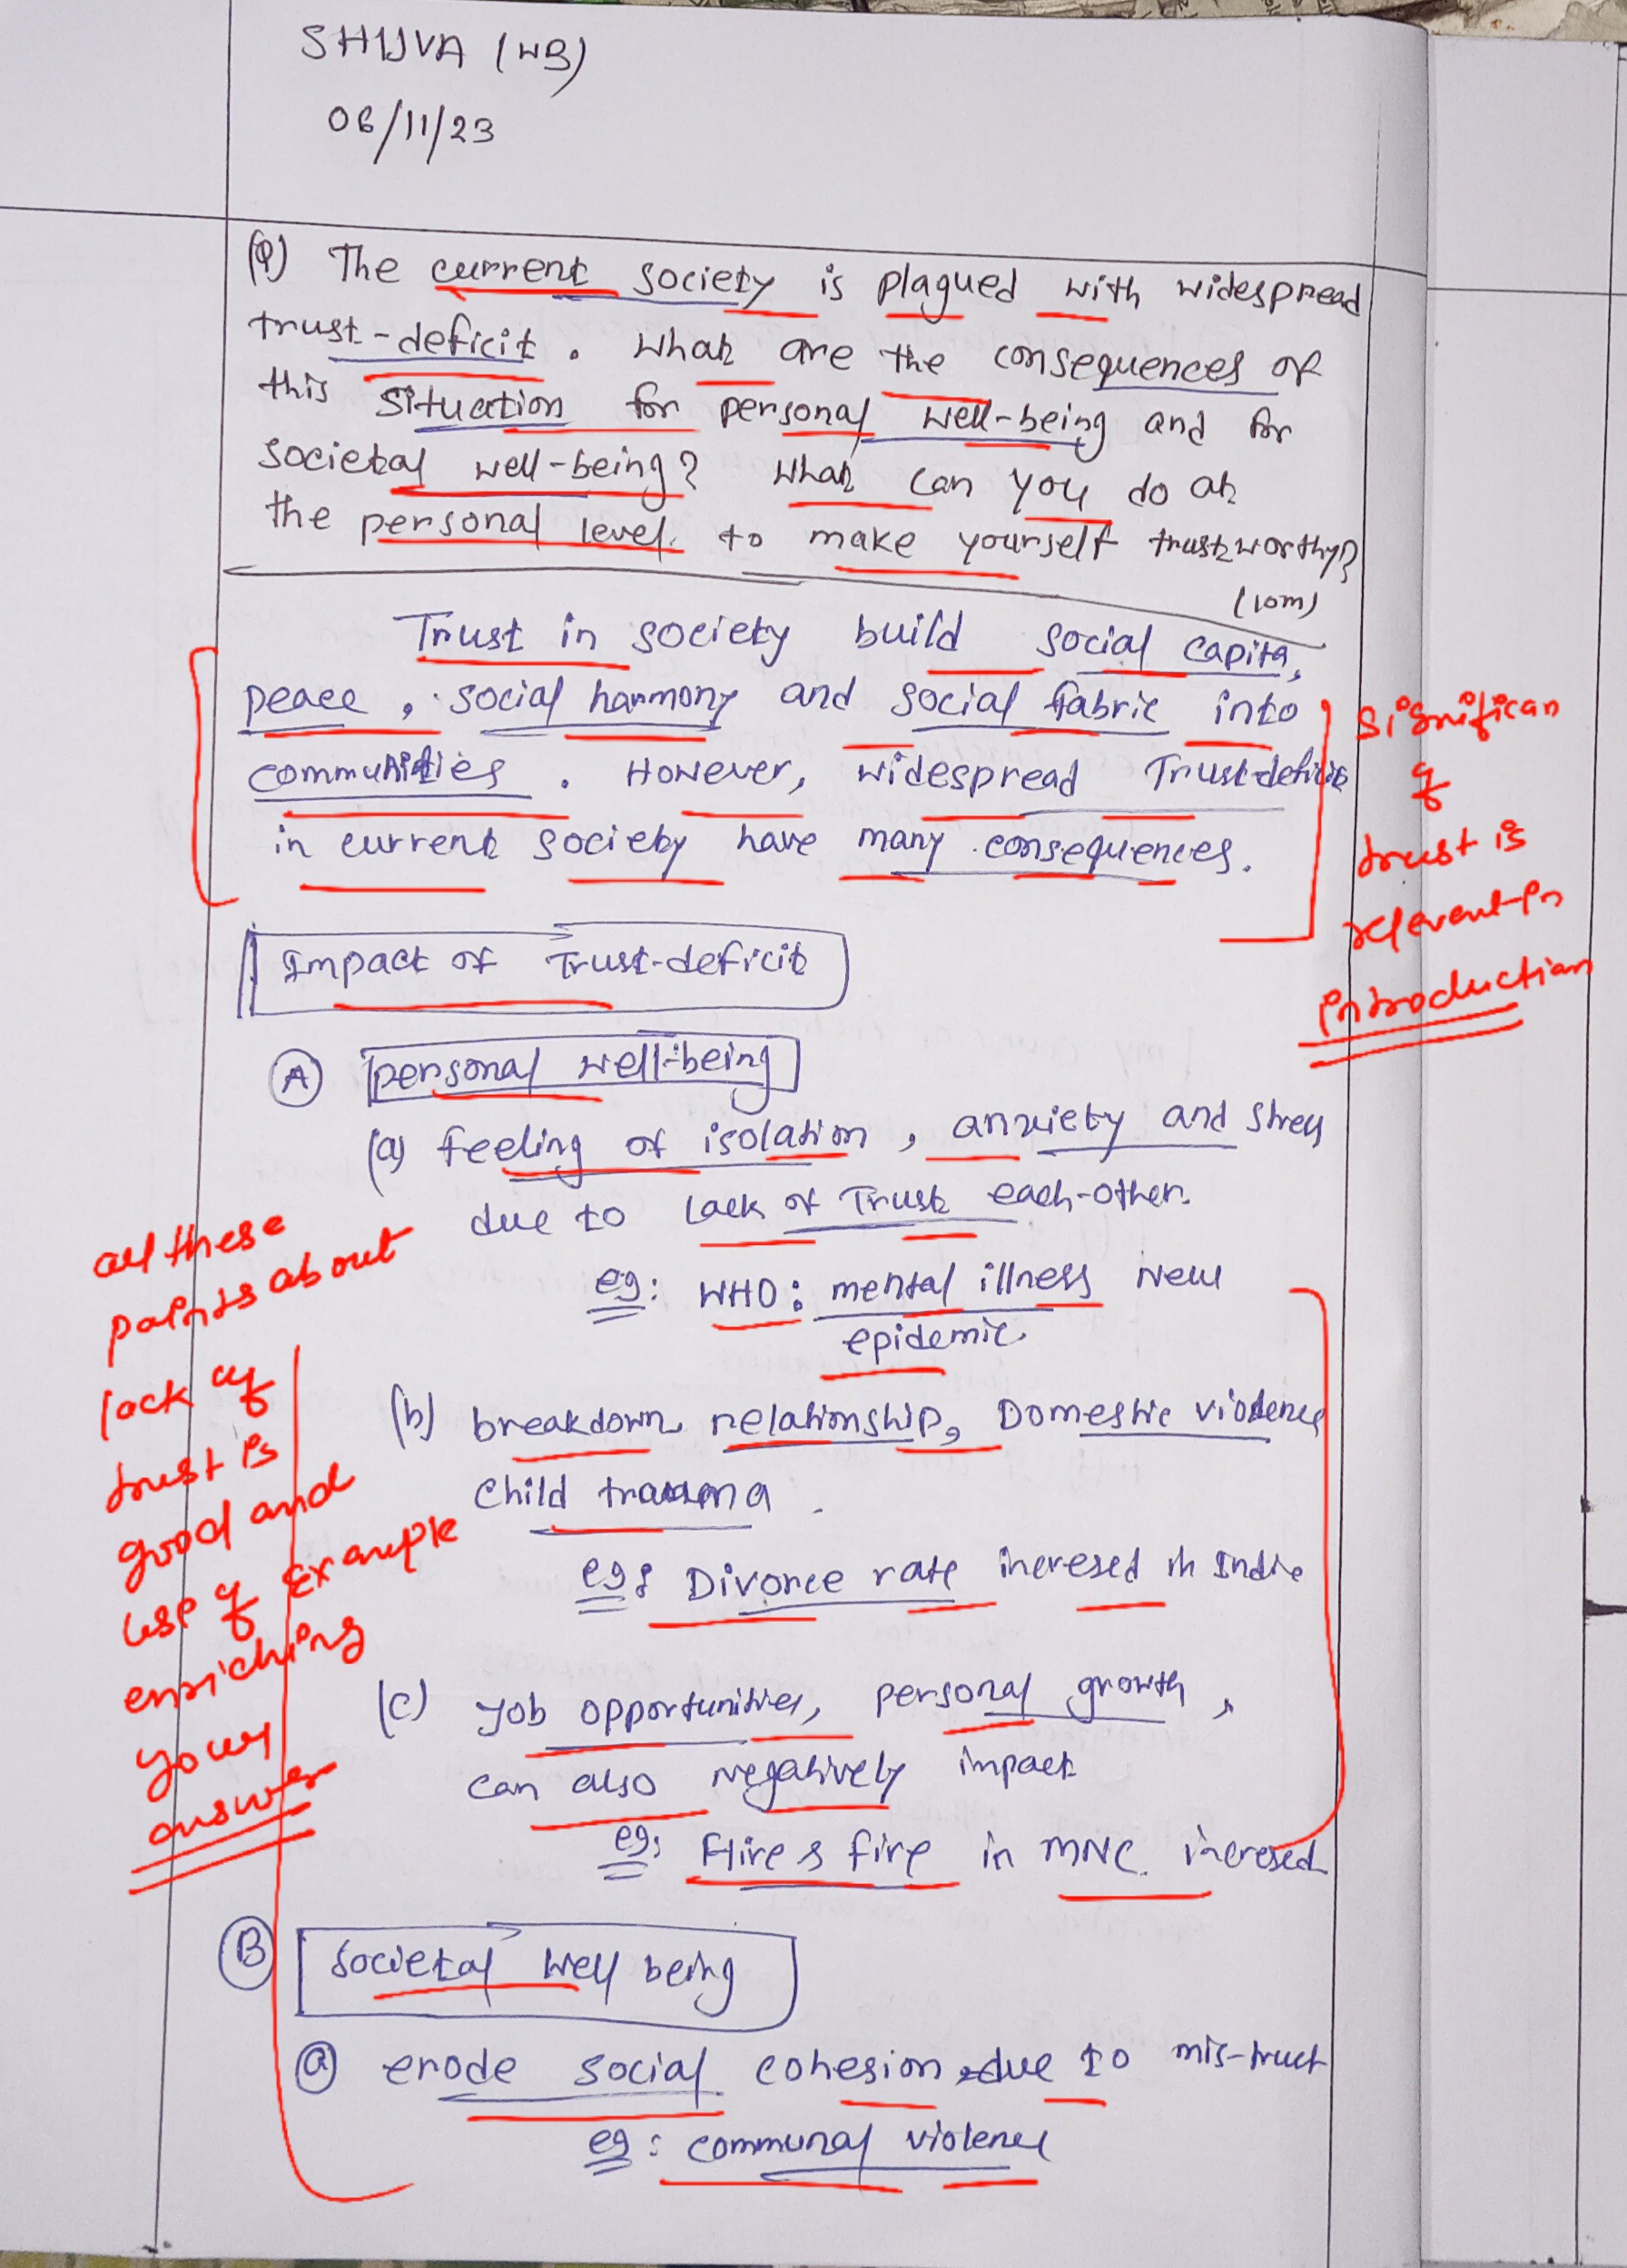 SHIJVA (WB)
06/11/23
(Q) The current society is plagued with widespread
trust-deficit. What are the consequences of
this situation for personal well-being and for
societal well-being? What can you do at
the personal level to make yourself trustworthy?
(10m)
Trust in society build social capita,
peace, social harmony and social fabric into
communities. However, widespread Trust-deficit
in current society have many consequences.
significan
of
trust is
relevent in
introduction
Impact of Trust-deficit
(A) personal well-being
(a) feeling of isolation, anxiety and stress
due to lack of Trust each-other.
eg: WHO: mental illness new
epidemic.
(b) breakdown relationship, Domestic violence
child trauma.
eg: Divorce rate incresed in India
(c) Job opportunities, personal growth,
can also negatively impact
eg: Hire & fire in MNC. incresed
all these
points about
lack of
trust is
good and
use of Example
enriching
your
answer
(B) Societal Well being
(a) erode social cohesion due to mis-trust
eg: communal violence